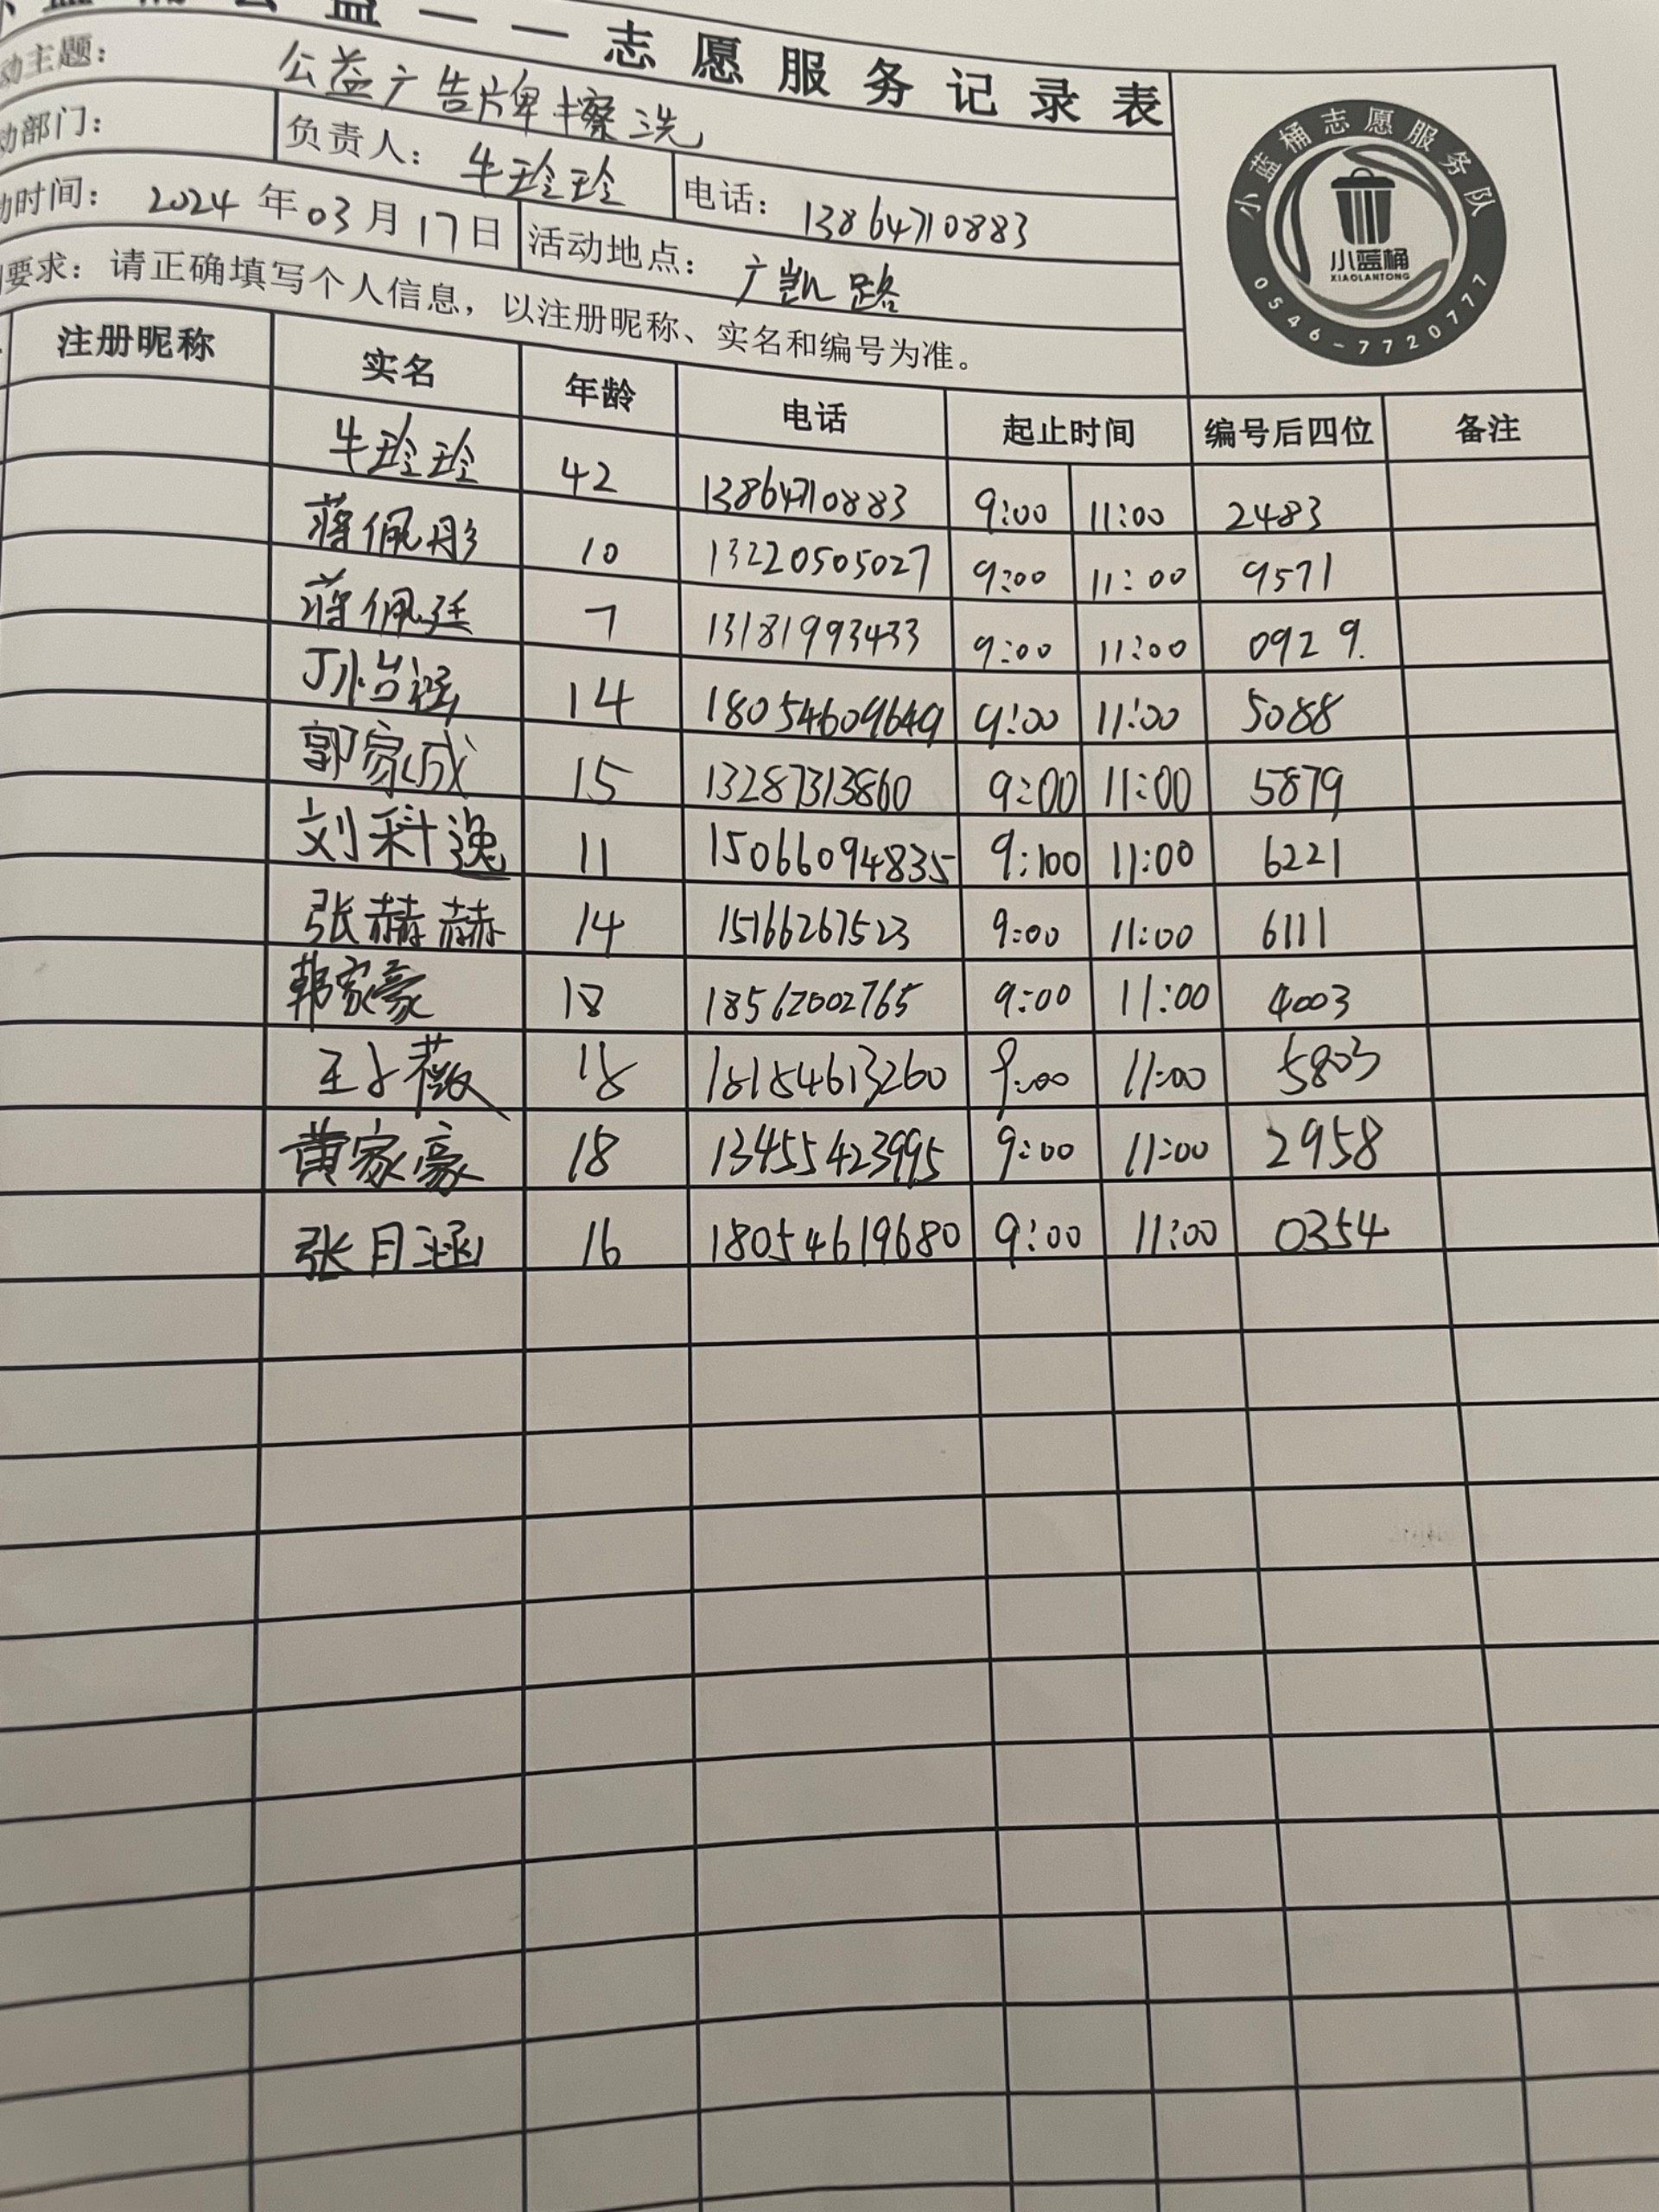 小蓝桶公益——志愿服务记录表
动主题: 公益广告牌擦洗
动部门: 负责人: 牛玲玲 电话: 13864710883
动时间: 2024年03月17日 活动地点: 广凯路
要求: 请正确填写个人信息，以注册昵称、实名和编号为准。
小蓝桶志愿服务队
小蓝桶
XIAOLANTONG
0546-7720777
注册昵称 实名 年龄 电话 起止时间 编号后四位 备注
牛玲玲 42 13864710883 9:00 11:00 2483
蒋佩彤 10 13220505027 9:00 11:00 9571
蒋佩廷 7 13181993433 9:00 11:00 0929.
丁怡涵 14 18054609649 9:00 11:00 5088
郭家成 15 13287313860 9:00 11:00 5879
刘科逸 11 15066094835 9:00 11:00 6221
张赫赫 14 15166267523 9:00 11:00 6111
韩家豪 18 18562002765 9:00 11:00 4003
王子薇 18 18184613260 9:00 11:00 5803
黄家豪 18 13455423995 9:00 11:00 2958
张月涵 16 18054619680 9:00 11:00 0354